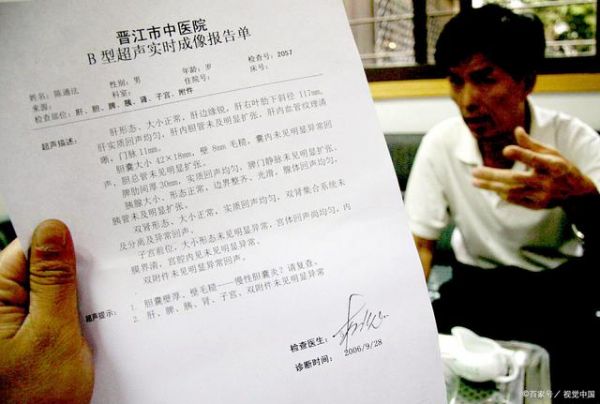 晋江市中医院
B型超声实时成像报告单
姓名：陈通法 性别：男 年龄：岁 检查号：2057
来源： 科室： 住院号： 床号：
检查部位：肝、胆、脾、胰、肾、子宫、附件
超声描述：
肝形态、大小正常，肝边缘锐，肝右叶肋下斜径 117mm，
肝实质回声均匀，肝内胆管未见明显扩张，肝内血管纹理清
晰，门脉 11mm。
胆囊大小 42×18mm，壁 8mm 毛糙，囊内未见明显异常回
声，胆总管未见明显扩张。
脾肋间厚 30mm，实质回声均匀，脾门静脉未见明显扩张。
胰腺大小、形态正常，边界整齐、光滑，腺体回声均匀，
胰管未及明显扩张。
双肾形态、大小正常，实质回声均匀，双肾集合系统未
及分离及异常回声。
子宫前位，大小形态未见明显异常，宫体回声尚均匀，内
膜界清，宫腔内未见明显异常回声。
双附件未见明显异常回声。
超声提示：1. 胆囊壁厚、壁毛糙——慢性胆囊炎？请复查。
2. 肝、脾、胰、肾、子宫、双附件未见明显异常
检查医生：
诊断时间：2006/9/28
©百家号/视觉中国